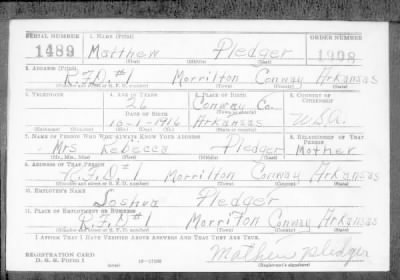 SERIAL NUMBER 1. NAME (Print) ORDER NUMBER
1489 Matthew Pledger 1908
(First) (Middle) (Last)
2. ADDRESS (Print)
R.F.D. #1 Morrilton Conway Arkansas
(Town) (County) (State)
3. TELEPHONE 4. AGE IN YEARS 5. PLACE OF BIRTH 6. COUNTRY OF CITIZENSHIP
26 Conway Co.
DATE OF BIRTH (Town or county)
10-1-1916 Arkansas U.S.A.
(Exchange) (Number) (Mo.) (Day) (Yr.) (State or country)
7. NAME OF PERSON WHO WILL ALWAYS KNOW YOUR ADDRESS 8. RELATIONSHIP OF THAT PERSON
Mrs Rebecca Pledger Mother
(Mr., Mrs., Miss) (First) (Middle) (Last)
9. ADDRESS OF THAT PERSON
R.F.D. #1 Morrilton Conway Arkansas
(Town) (County) (State)
10. EMPLOYER'S NAME
Joshua Pledger
11. PLACE OF EMPLOYMENT OR BUSINESS
R.F.D. #1 Morrilton Conway Arkansas
(Town) (County) (State)
I AFFIRM THAT I HAVE VERIFIED ABOVE ANSWERS AND THAT THEY ARE TRUE.
REGISTRATION CARD
D. S. S. Form 1 Mathew Pledger
(Registrant's signature)